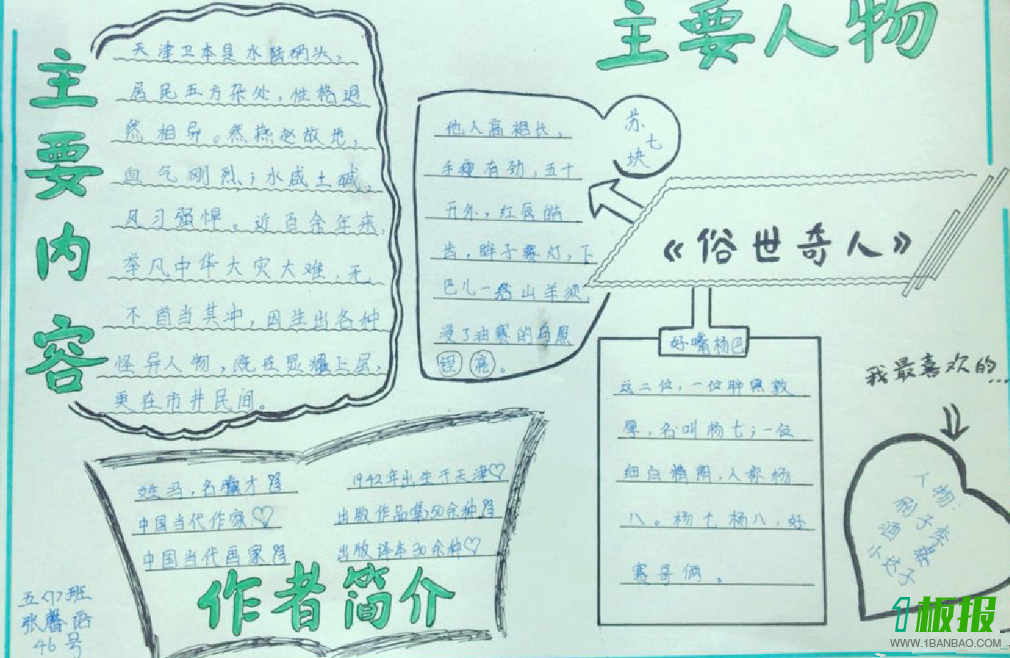 主要内容
天津卫本是水陆码头，
居民五方杂处，性格迥
然相异。然燕赵故地，
血气刚烈；水咸土碱，
风习强悍。近百余年来，
举凡中华大灾大难，无
不首当其冲，因生出各种
怪异人物，既在显耀上层，
更在市井民间。
主要人物
苏七块
他人高袍长，
手瘦有劲，五十
开外，红唇皓
齿，眸子赛灯，下
巴儿一绺山羊须，
浸了油赛的乌黑
锃亮。
《俗世奇人》
好嘴杨巴
这二位，一位胖黑敦
厚，名叫杨七；一位
细白精明，人称杨
八。杨七杨八，好
赛哥俩。
我最喜欢的...
人物：
刷子李
酒婆
小达子
作者简介
姓冯，名骥才
中国当代作家♡
中国当代画家
1942年出生于天津♡
出版作品集50余种
出版译本30余种♡
五〈7〉班
张馨
46号
1板报
WWW.1BANBAO.COM